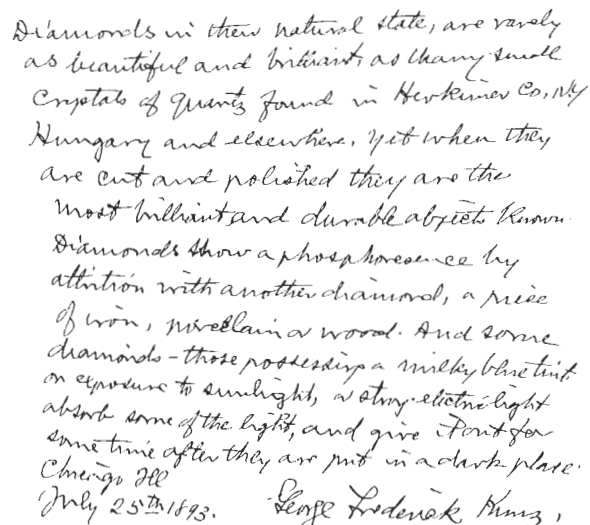 Diamonds in their natural state, are rarely
as beautiful and brilliant, as many small
Crystals of quartz found in Herkimer Co, NY
Hungary and elsewhere, yet when they
are cut and polished they are the
most brilliant and durable objects known.
Diamonds show a phosphoresence by
attrition with another diamond, a piece
of iron, porcelain or wood. And some
diamonds - those possessing a milky blue tint
on exposure to sunlight, or strong electric light
absorb some of the light, and give it out for
some time after they are put in a dark place.
Chicago Ill
July 25th 1893. George Frederick Kunz,